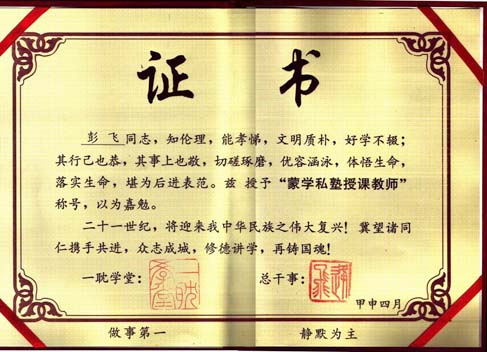 证 书
彭飞同志，知伦理，能孝悌，文明质朴，好学不辍；
其行己也恭，其事上也敬，切磋琢磨，优容涵泳，体悟生命，
落实生命，堪为后进表范。兹 授予“蒙学私塾授课教师”
称号，以为嘉勉。
二十一世纪，将迎来我中华民族之伟大复兴！冀望诸同
仁携手共进，众志成城，修德讲学，再铸国魂！
一耽学堂： 总干事：
甲申四月
做事第一 静默为主